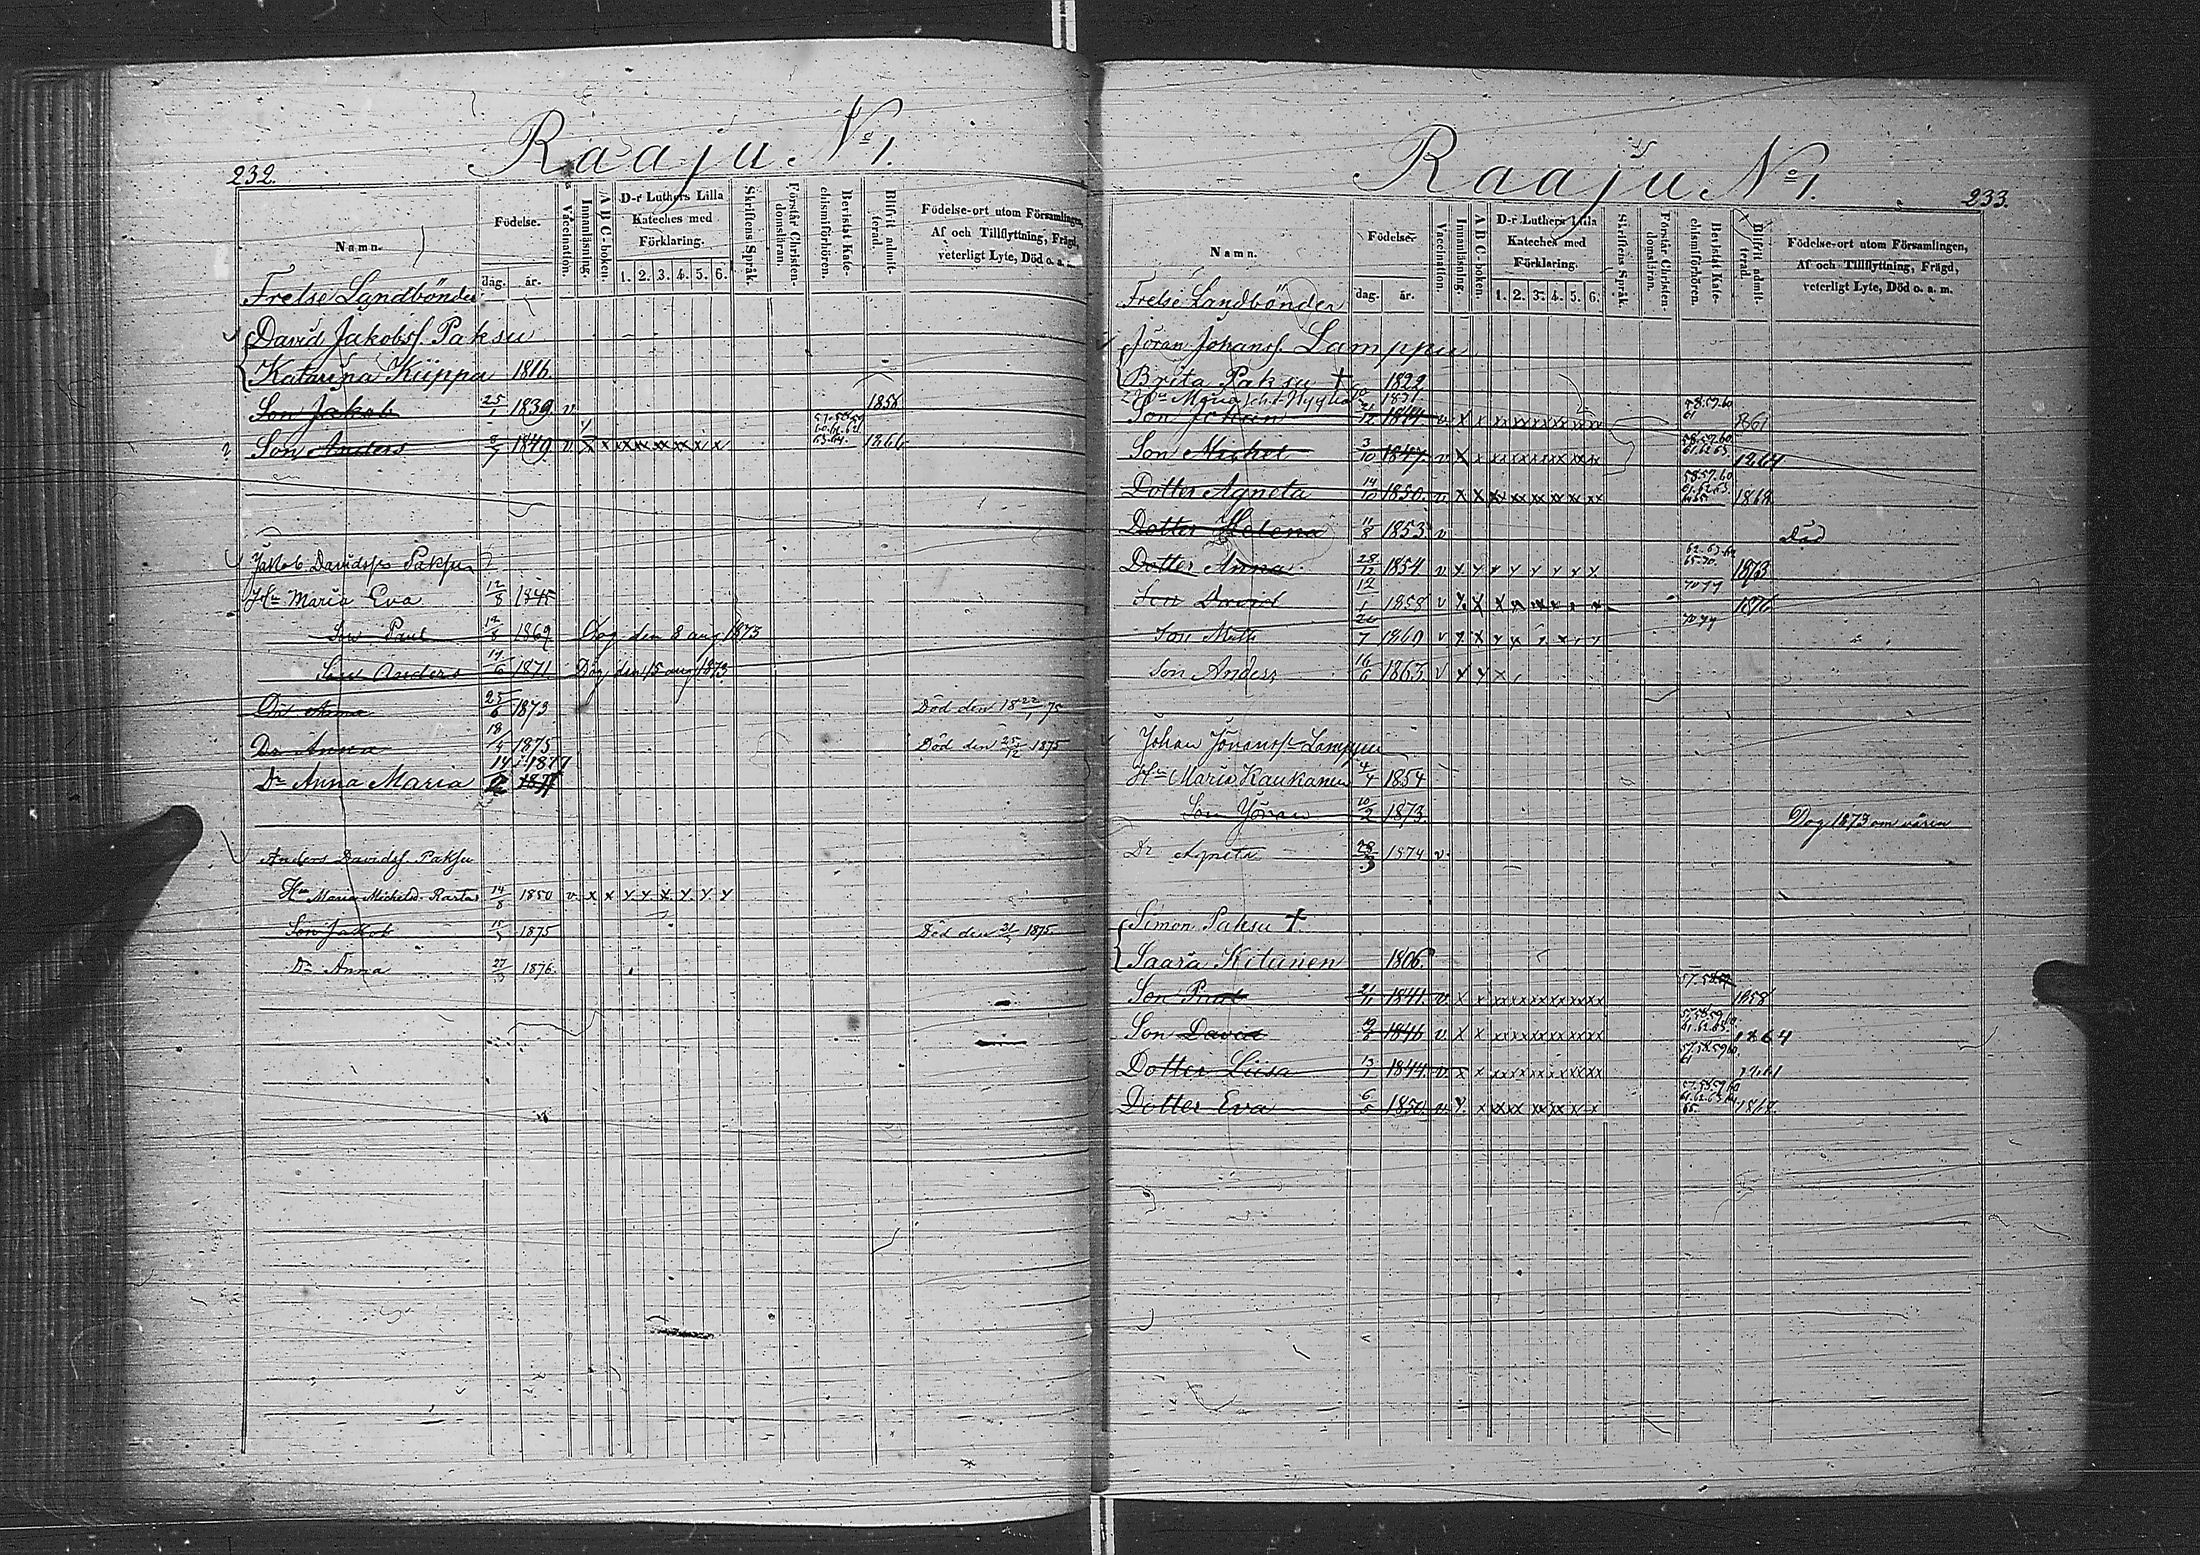 232.
Raaju No 1.
Namn.
Födelse.
dag.
år.
Vaccination.
Innanläsning.
A B C-boken.
D-r Luthers Lilla Kateches med Förklaring.
1. 2. 3. 4. 5. 6.
Skriftens Språk.
Förstår Christendomsläran.
Bevistat Katechismiförhören.
Blifvit admitterad.
Födelse-ort utom Församlingen, Af och Tillflyttning, Frägd, veterligt Lyte, Död o. a. m.
Frelse Landbönder
David Jakobss. Paksu
Katarina Kiippa 1816.
Son Jakob 25/1 1839 v 1858
Son Anders 1849 v x x xx xx xx xx x x 1866
Jakob Davidss Paksu
Hu Maria Eva 12/8 1845
Son Paul 12/8 1869 Dog den 8 aug 1873
Son Anders 17/6 1871 Dog den 15 aug 1873
Dr Anna 25/6 1873 Död den 18 22/1 75
Dr Anna 18/4 1875 Död den 25/12 1875
Dr Anna Maria 14 1877
Anders Davidss. Paksu
Hu Maria Michelsd. Rasta 14/8 1850 v x x y y x y y y
Son Jakob 1875 Död den 1875
Dr Anna 27/3 1876.
Raaju No 1.
233.
Namn.
Födelse
dag.
år.
Vaccination.
Innanläsning.
A B C-boken.
D-r Luthers Lilla Kateches med Förklaring.
1. 2. 3. 4. 5. 6.
Skriftens Språk.
Förstår Christendomsläran.
Bevistat Katechismiförhören.
Blifvit admitterad.
Födelse-ort utom Församlingen, Af och Tillflyttning, Frägd, veterligt Lyte, Död o. a. m.
Frelse Landbönder
Jöran Johanss. Lamppu
Brita Paksu † 1822
Maria 1831
Son Johan 1844 v x x 58.59.60 61 1861
Son Michel 3/10 1847 v x x 58.59.60 61.62.63. 1864
Dotter Agneta 14/10 1850 v x x 58.59.60 61.62.63. 1868
Dotter Helena 11/8 1853 v död
Dotter Anna 28/12 1854 v y y y y y y y x 1873
Son David 12/1 1858 v 70 77 1876
Son Matts 1860 v y x y y 70 77
Son Anders 16/6 1863 v y y x
Johan Jöranss Lamppu
Hu Maria Kaukanen 4/4 1854
Son Jöran 10/2 1873. Dog 1873 om våren
Dr Agneta 28/3 1874 v.
Simon Paksu †
Saara Kitunen 1806.
Son Paul 1841 v x x 57.58.59 1858
Son David 1846 v x x 57.58.59.60 61.62.63. 1864
Dotter Liisa 1844 v x x 57.58.59.60 61
Dotter Eva 6/5 1850 v y. x 57.58.59.60 61.62.63.64 65. 1868.